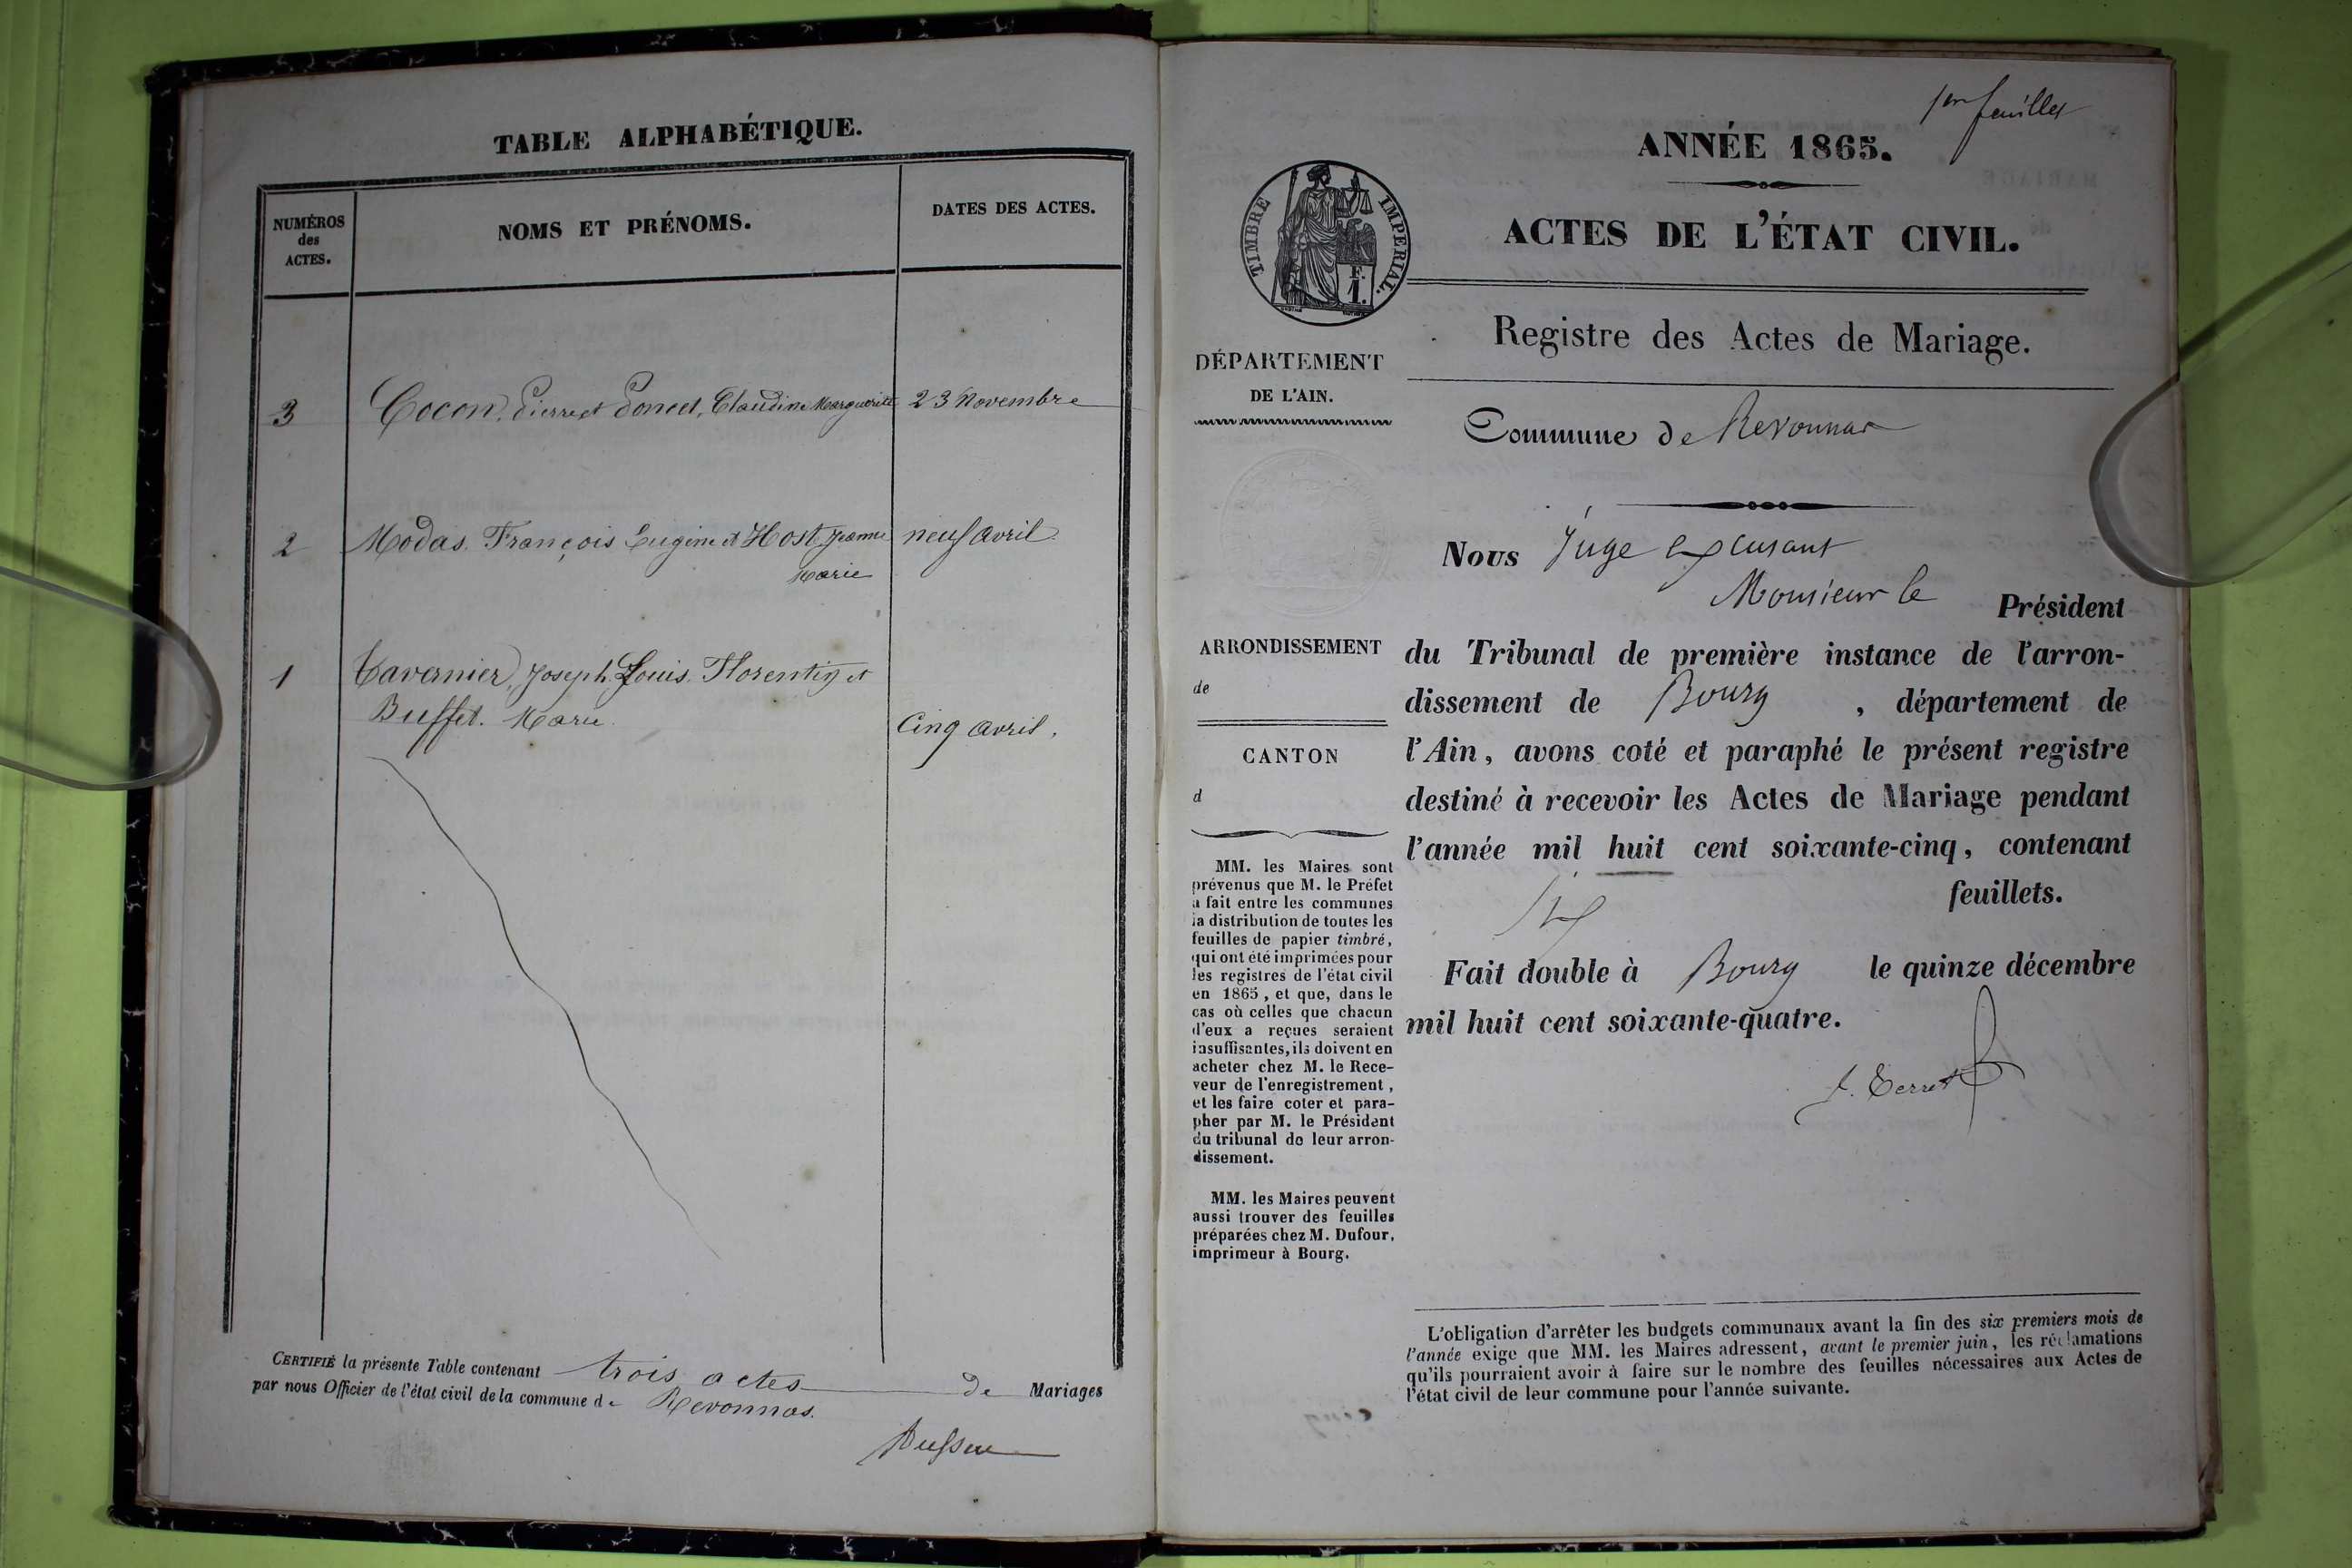 TABLE ALPHABÉTIQUE.
NUMÉROS
des
ACTES.
NOMS ET PRÉNOMS.
DATES DES ACTES.
3 Cocon, Pierre et Poncet, Claudine Marguerite 23 Novembre
2 Modas. François Eugène et Host Jeanne neuf avril
Marie
1 Tavernier, Joseph Louis Florentin et
Buffet. Marie. Cinq avril.
CERTIFIÉ la présente Table contenant trois actes de Mariages
par nous Officier de l'état civil de la commune de Revonnas.
1er feuillet
ANNÉE 1865.
ACTES DE L'ÉTAT CIVIL.
TIMBRE IMPERIAL.
F.
1.
Registre des Actes de Mariage.
DÉPARTEMENT
DE L'AIN.
Commune de Revonnas
Nous Juge excusant
Monsieur le Président
du Tribunal de première instance de l'arron-
dissement de Bourg , département de
l'Ain, avons coté et paraphé le présent registre
destiné à recevoir les Actes de Mariage pendant
l'année mil huit cent soixante-cinq, contenant
six feuillets.
Fait double à Bourg le quinze décembre
mil huit cent soixante-quatre.
ARRONDISSEMENT
de
CANTON
d
MM. les Maires sont
prévenus que M. le Préfet
a fait entre les communes
la distribution de toutes les
feuilles de papier timbré,
qui ont été imprimées pour
les registres de l'état civil
en 1865, et que, dans le
cas où celles que chacun
d'eux a reçues seraient
insuffisantes, ils doivent en
acheter chez M. le Rece-
veur de l'enregistrement,
et les faire coter et para-
pher par M. le Président
du tribunal de leur arron-
dissement.
MM. les Maires peuvent
aussi trouver des feuilles
préparées chez M. Dufour,
imprimeur à Bourg.
L'obligation d'arrêter les budgets communaux avant la fin des six premiers mois de
l'année exige que MM. les Maires adressent, avant le premier juin, les réclamations
qu'ils pourraient avoir à faire sur le nombre des feuilles nécessaires aux Actes de
l'état civil de leur commune pour l'année suivante.